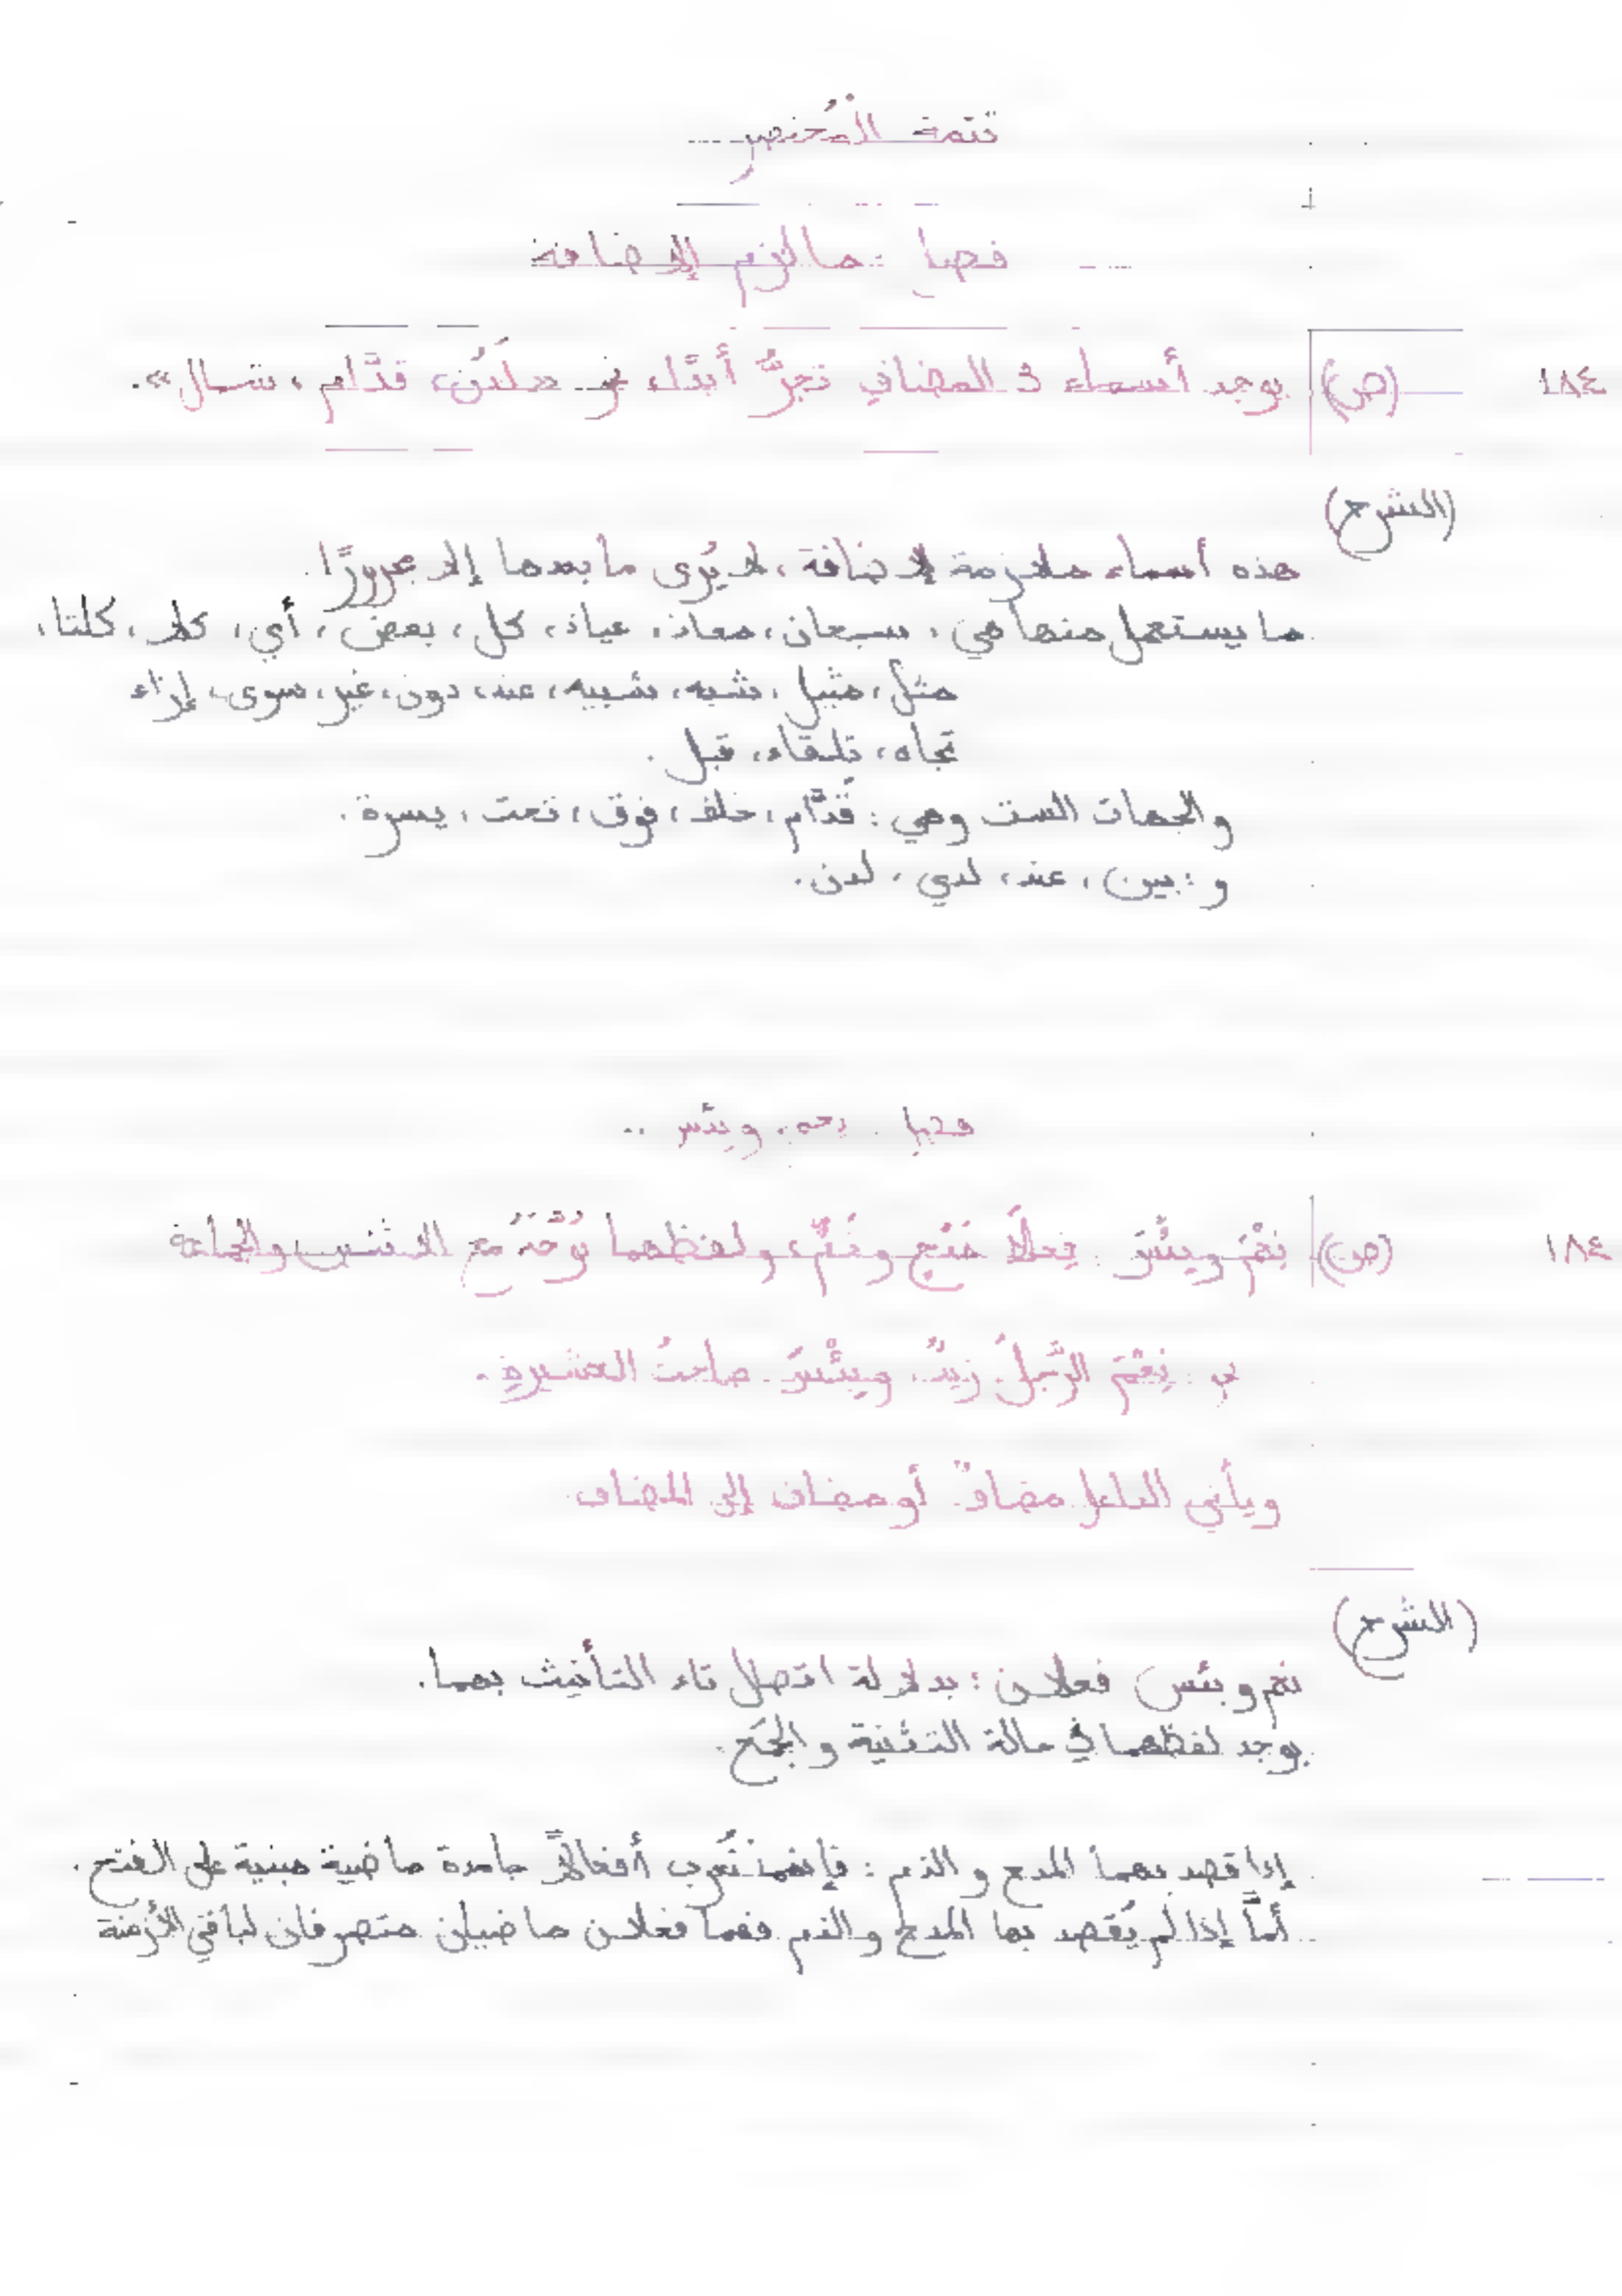 تتمة المختصر
فصل: ما لازم الإضافة
١٨٤ (ص) يوجد أسماء في المضاف تجرُّ أبدًا، نحو «لدُن، قدَّام، شمال».
(الشرح)
هذه أسماء ملازمة لإضافة، لا يُرى ما بعدها إلا مجرورًا.
ما يستعمل منها هي، سبحان، معاذ، عياذ، كل، بعض، أي، كلا، كلتا،
مثل، مثيل، شبه، شبيه، عند، دون، غير، سوى، إزاء
تجاه، تلقاء، قبل.
والجهات الست وهي: قُدَّام، خلف، فوق، تحت، يسرة.
و: بين، عند، لدي، لدن.
فصل نعم وبئس ..
١٨٤ (ص) نِعْمَ وبِئْسَ. فِعلَا مَدْحٍ وذَمٍّ، ولفظهما يُوحَّد مع الاثنين والجماعة
نِعْمَ الرَّجلُ زيدٌ، وبِئْسَ صاحبُ العشيرةِ.
ويأتي الفاعل مضافٌ أو مضاف إلى المضاف
(الشرح)
نعم وبئس فعلان: بدلالة اتصال تاء التأنيث بهما.
يوحد لفظهما في حالة التثنية والجمع.
إذا قصد بهما المدح والذم: فإنهما تُعرب أفعالاً جامدة ماضية مبنية على الفتح.
أمَّا إذا لم يُقصد بها المدح والذم فهما فعلان ماضيان متصرفان لباقي الأزمنة